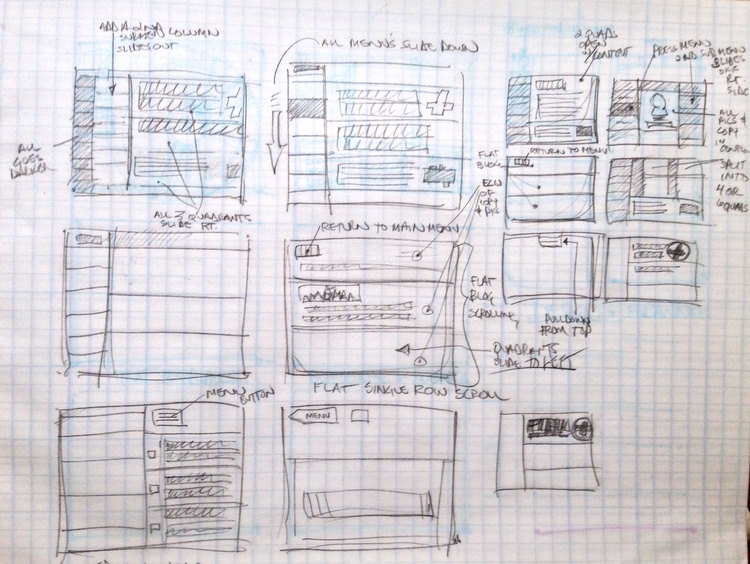 ADD A 2ND
SUBMENU COLUMN
SLIDES OUT
ALL MENU'S SLIDE DOWN
2 QUADS
OPEN
CONTENT
PRESS MENU
2ND SUB MENU
SLIDES
OFF
RT
SIDE
ALL
PICS &
COPY
IN
ALL
GOES
DARKER
ALL 3 QUADRANTS
SLIDE RT.
FLAT
BLOG
RETURN TO MENU
OF
COPY
& PICS
SPLIT
INTO
4 OR
6 QUADS
RETURN TO MAIN MENU
FLAT
BLOG
SCROLLING
PULLDOWN
FROM TOP
QUADRANTS
SLIDE TO LEFT
FLAT SINGLE ROW SCROLL
MENU
BUTTON
MENU